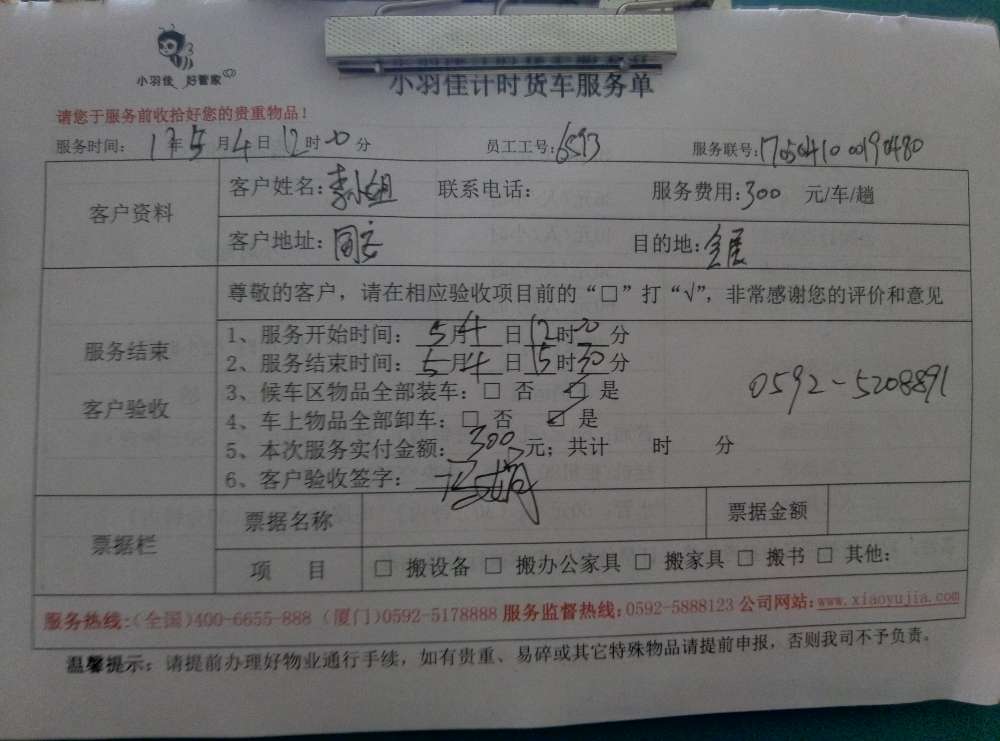 小羽佳 好管家
小羽佳计时货车服务单
请您于服务前收拾好您的贵重物品！
服务时间： 17年5月4日12时20分 员工工号：6593 服务联号：
客户资料
客户姓名：李小姐 联系电话： 服务费用：300 元/车/趟
客户地址：同安 目的地：
服务结束
客户验收
尊敬的客户，请在相应验收项目前的“□”打“√”，非常感谢您的评价和意见
1、服务开始时间： 5月4日12时20分
2、服务结束时间： 5月4日15时30分
3、候车区物品全部装车：□ 否 ☑ 是
4、车上物品全部卸车：□ 否 ☑ 是
5、本次服务实付金额： 300 元；共计 时 分
6、客户验收签字：
0592-5208891
票据栏
票据名称 票据金额
项 目 □ 搬设备 □ 搬办公家具 □ 搬家具 □ 搬书 □ 其他：
服务热线：(全国)400-6655-888 (厦门)0592-5178888 服务监督热线：0592-5888123 公司网站：www.xiaoyujia.com
温馨提示：请提前办理好物业通行手续，如有贵重、易碎或其它特殊物品请提前申报，否则我司不予负责。